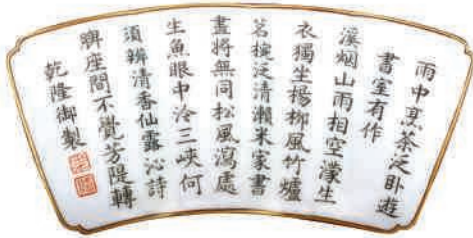 雨中烹茶泛卧遊
書室有作
溪烟山雨相空濛生
衣獨坐楊柳風竹爐
茗椀泛清瀨米家書
畫將無同松風瀉處
生魚眼中泠三峽何
須辨清香仙露沁詩
脾座間不覺芳隄轉
乾隆御製